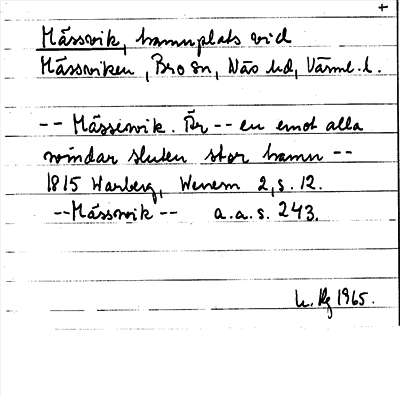 +
Mässvik, hamnplats vid
Mässviken, Bro sn, Näs hd, Värml. l.
-- Mässewik. Är -- en emot alla
windar sluten stor hamn --
1815 Warberg, Wenern 2, s. 12.
-- Mässwik -- a.a.s. 243.
1965.